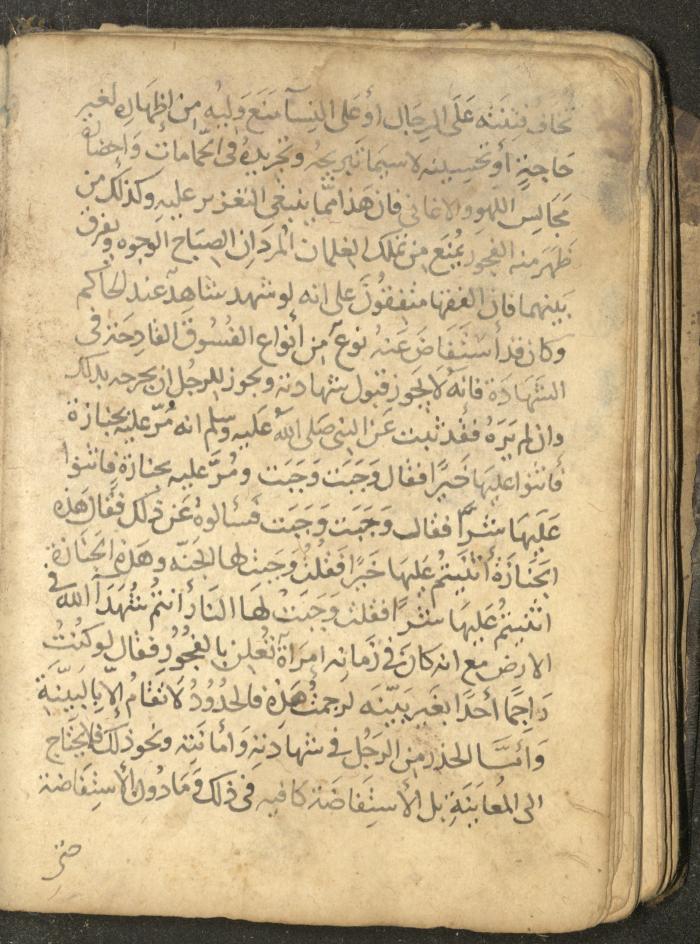 تخاف فتنته على الرجال أو على النسآ منع وليه من اظهاره لغير
حاجة أو تحسينه لاسيما تبريحه وتجريده في الحمامات وإحضاره
مجالس اللهو والاغاني فان هذا مما ينبغي التعزير عليه وكذلك من
ظهر منه الفجور يمنع من تملك الغلمان المردان الصباح الوجوه ويفرق
بينهما فان الفقها متفقون على انه لو شهد شاهد عند الحاكم
وكان قد أستفاض عنه نوع من أنواع الفسوق القادحة في
الشهادة فانه لا يجوز قبول شهادته ويجوز للرجل ان يجرحه بذلك
وان لم يره فقد ثبت عن النبي صلى الله عليه وسلم انه مر عليه بجنازة
فاثنوا عليها خيرا فقال وجبت وجبت ومر عليه بجنازة فاثنوا
عليها شرا فقال وجبت وجبت فسالوه عن ذلك فقال هذه
الجنازة أثنيتم عليها خيرا فقلت وجبت لها الجنه وهذه الجنازة
اثنيتم عليها شرا فقلت وجبت لها النار أنتم شهدآ الله في
الارض مع انه كان في زمانه امرأة تعلن بالفجور فقال لو كنت
راجما أحدا بغير بينه لرجمت هذه فالحدود لا تقام الا بالبينة
وأما الحذر من الرجل في شهادته وأمانته ونحو ذلك فلا يحتاج
الى المعاينة بل الأستفاضة كافيه في ذلك وما دون الأستفاضة
حتى